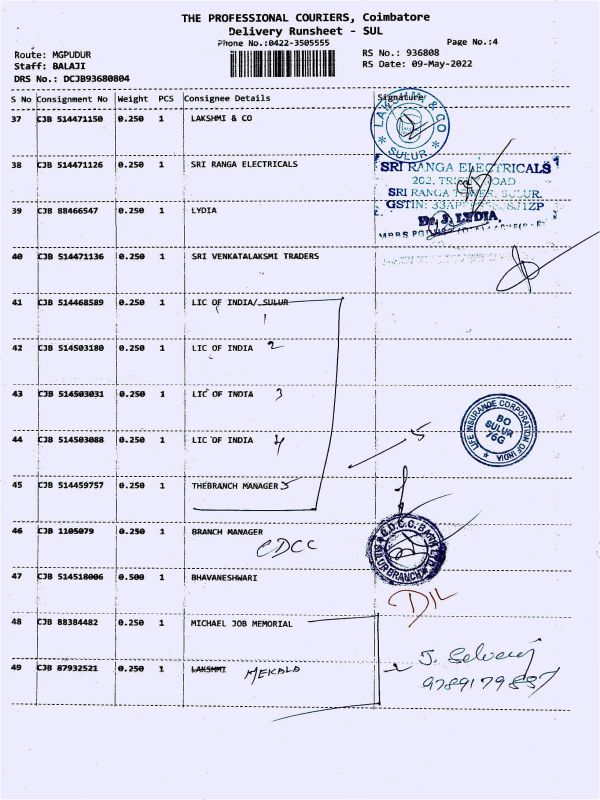 THE PROFESSIONAL COURIERS, Coimbatore
Delivery Runsheet - SUL
Phone No.:0422-3505555
Page No.:4
Route: MGPUDUR
RS No.: 936808
Staff: BALAJI
RS Date: 09-May-2022
DRS No.: DCJB93680804
S No Consignment No Weight PCS Consignee Details Signature
37 CJB 514471150 0.250 1 LAKSHMI & CO
LAKSHMI & CO
* SULUR *
38 CJB 514471126 0.250 1 SRI RANGA ELECTRICALS
SRI RANGA ELECTRICALS
202, ROAD
SRI RANGA TOWER, SULUR.
GSTIN:
39 CJB 88466547 0.250 1 LYDIA
Dr. J. LYDIA,
40 CJB 514471136 0.250 1 SRI VENKATALAKSMI TRADERS
41 CJB 514468589 0.250 1 LIC OF INDIA/ SULUR
1
42 CJB 514503180 0.250 1 LIC OF INDIA 2
43 CJB 514503031 0.250 1 LIC OF INDIA 3
LIFE INSURANCE CORPORATION OF INDIA
BO
SULUR
76G
44 CJB 514503088 0.250 1 LIC OF INDIA 4
5
45 CJB 514459757 0.250 1 THEBRANCH MANAGER 5
46 CJB 1105079 0.250 1 BRANCH MANAGER
CDCC
C.D.C.C. BANK LTD.
SULUR BRANCH
47 CJB 514518006 0.500 1 BHAVANESHWARI
D/L
48 CJB 88384482 0.250 1 MICHAEL JOB MEMORIAL
49 CJB 87932521 0.250 1 LAKSHMI MEKALA
J. Selvaraj